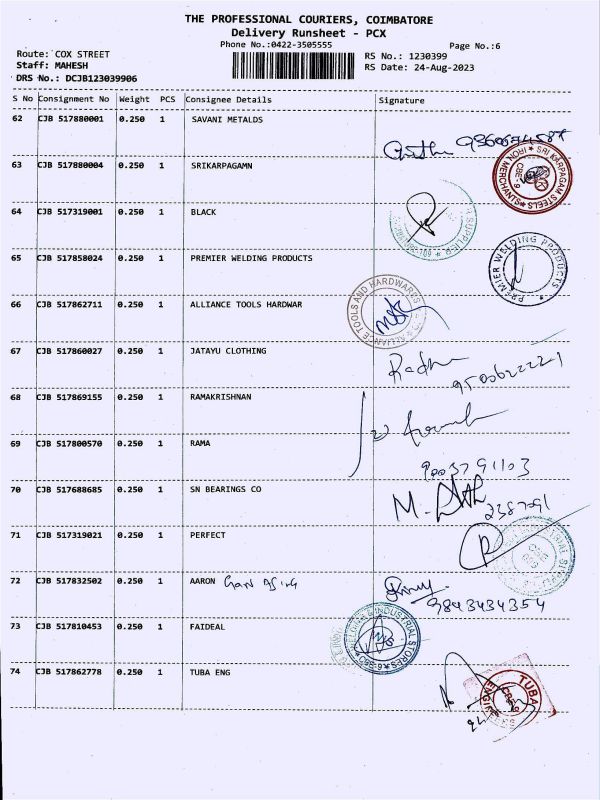 THE PROFESSIONAL COURIERS, COIMBATORE
Delivery Runsheet - PCX
Phone No.:0422-3505555
Page No.:6
Route: COX STREET
RS No.: 1230399
Staff: MAHESH
RS Date: 24-Aug-2023
DRS No.: DCJB123039906
S No Consignment No Weight PCS Consignee Details Signature
62 CJB 517880001 0.250 1 SAVANI METALDS
63 CJB 517880004 0.250 1 SRIKARPAGAMN
SRI KARPAGAM STEELS IRON MERCHANTS CBE-9
64 CJB 517319001 0.250 1 BLACK
65 CJB 517858024 0.250 1 PREMIER WELDING PRODUCTS
PREMIER WELDING PRODUCTS
66 CJB 517862711 0.250 1 ALLIANCE TOOLS HARDWAR
ALLIANCE TOOLS AND HARDWARES
67 CJB 517860027 0.250 1 JATAYU CLOTHING
Radha
68 CJB 517869155 0.250 1 RAMAKRISHNAN
69 CJB 517800570 0.250 1 RAMA
9003791103
70 CJB 517688685 0.250 1 SN BEARINGS CO
71 CJB 517319021 0.250 1 PERFECT
72 CJB 517832502 0.250 1 AARON
9843434354
73 CJB 517810453 0.250 1 FAIDEAL
WELDING & INDUSTRIAL STORES CBE-9
74 CJB 517862778 0.250 1 TUBA ENG
TUBA